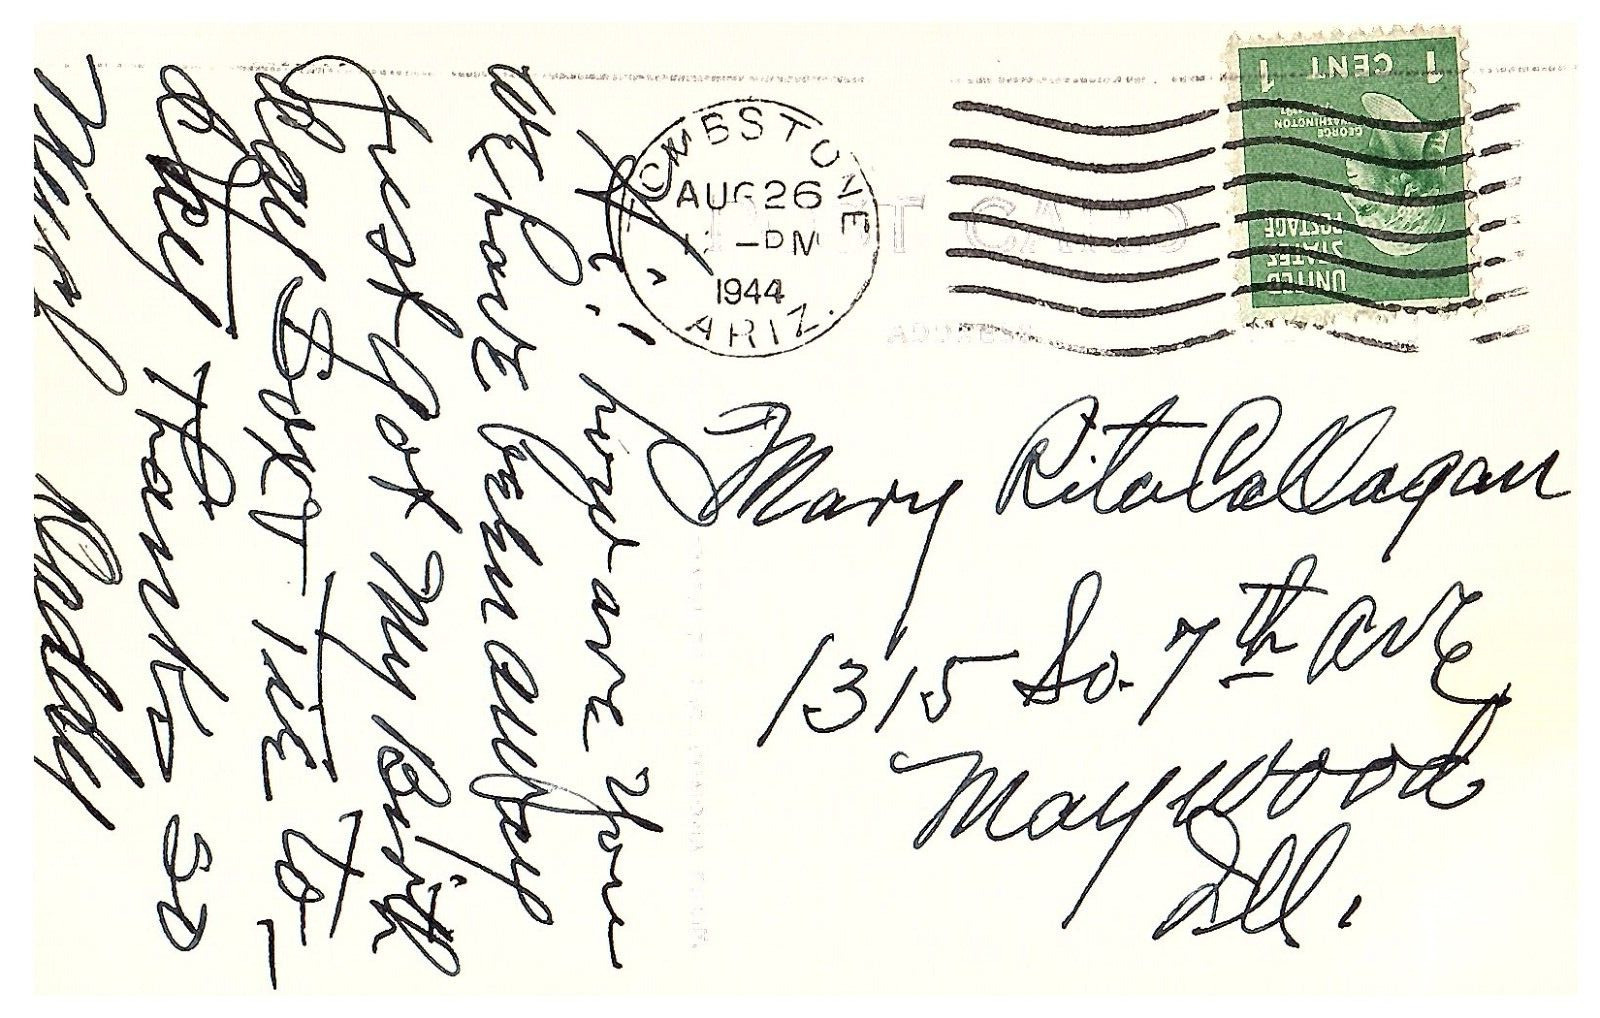 Hi!! how are you
WE have been away
Just got my Birth
day Box + TiE to-
day Thanks so
Much Daddy
TOMBSTONE
AUG 26
12 -PM
1944
ARIZ.
POST CARD
1 CENT 1
GEORGE
WASHINGTON
UNITED
STATES
POSTAGE
Mary Rita Callagan
1315 So. 7th AvE
Maywood
Ill.